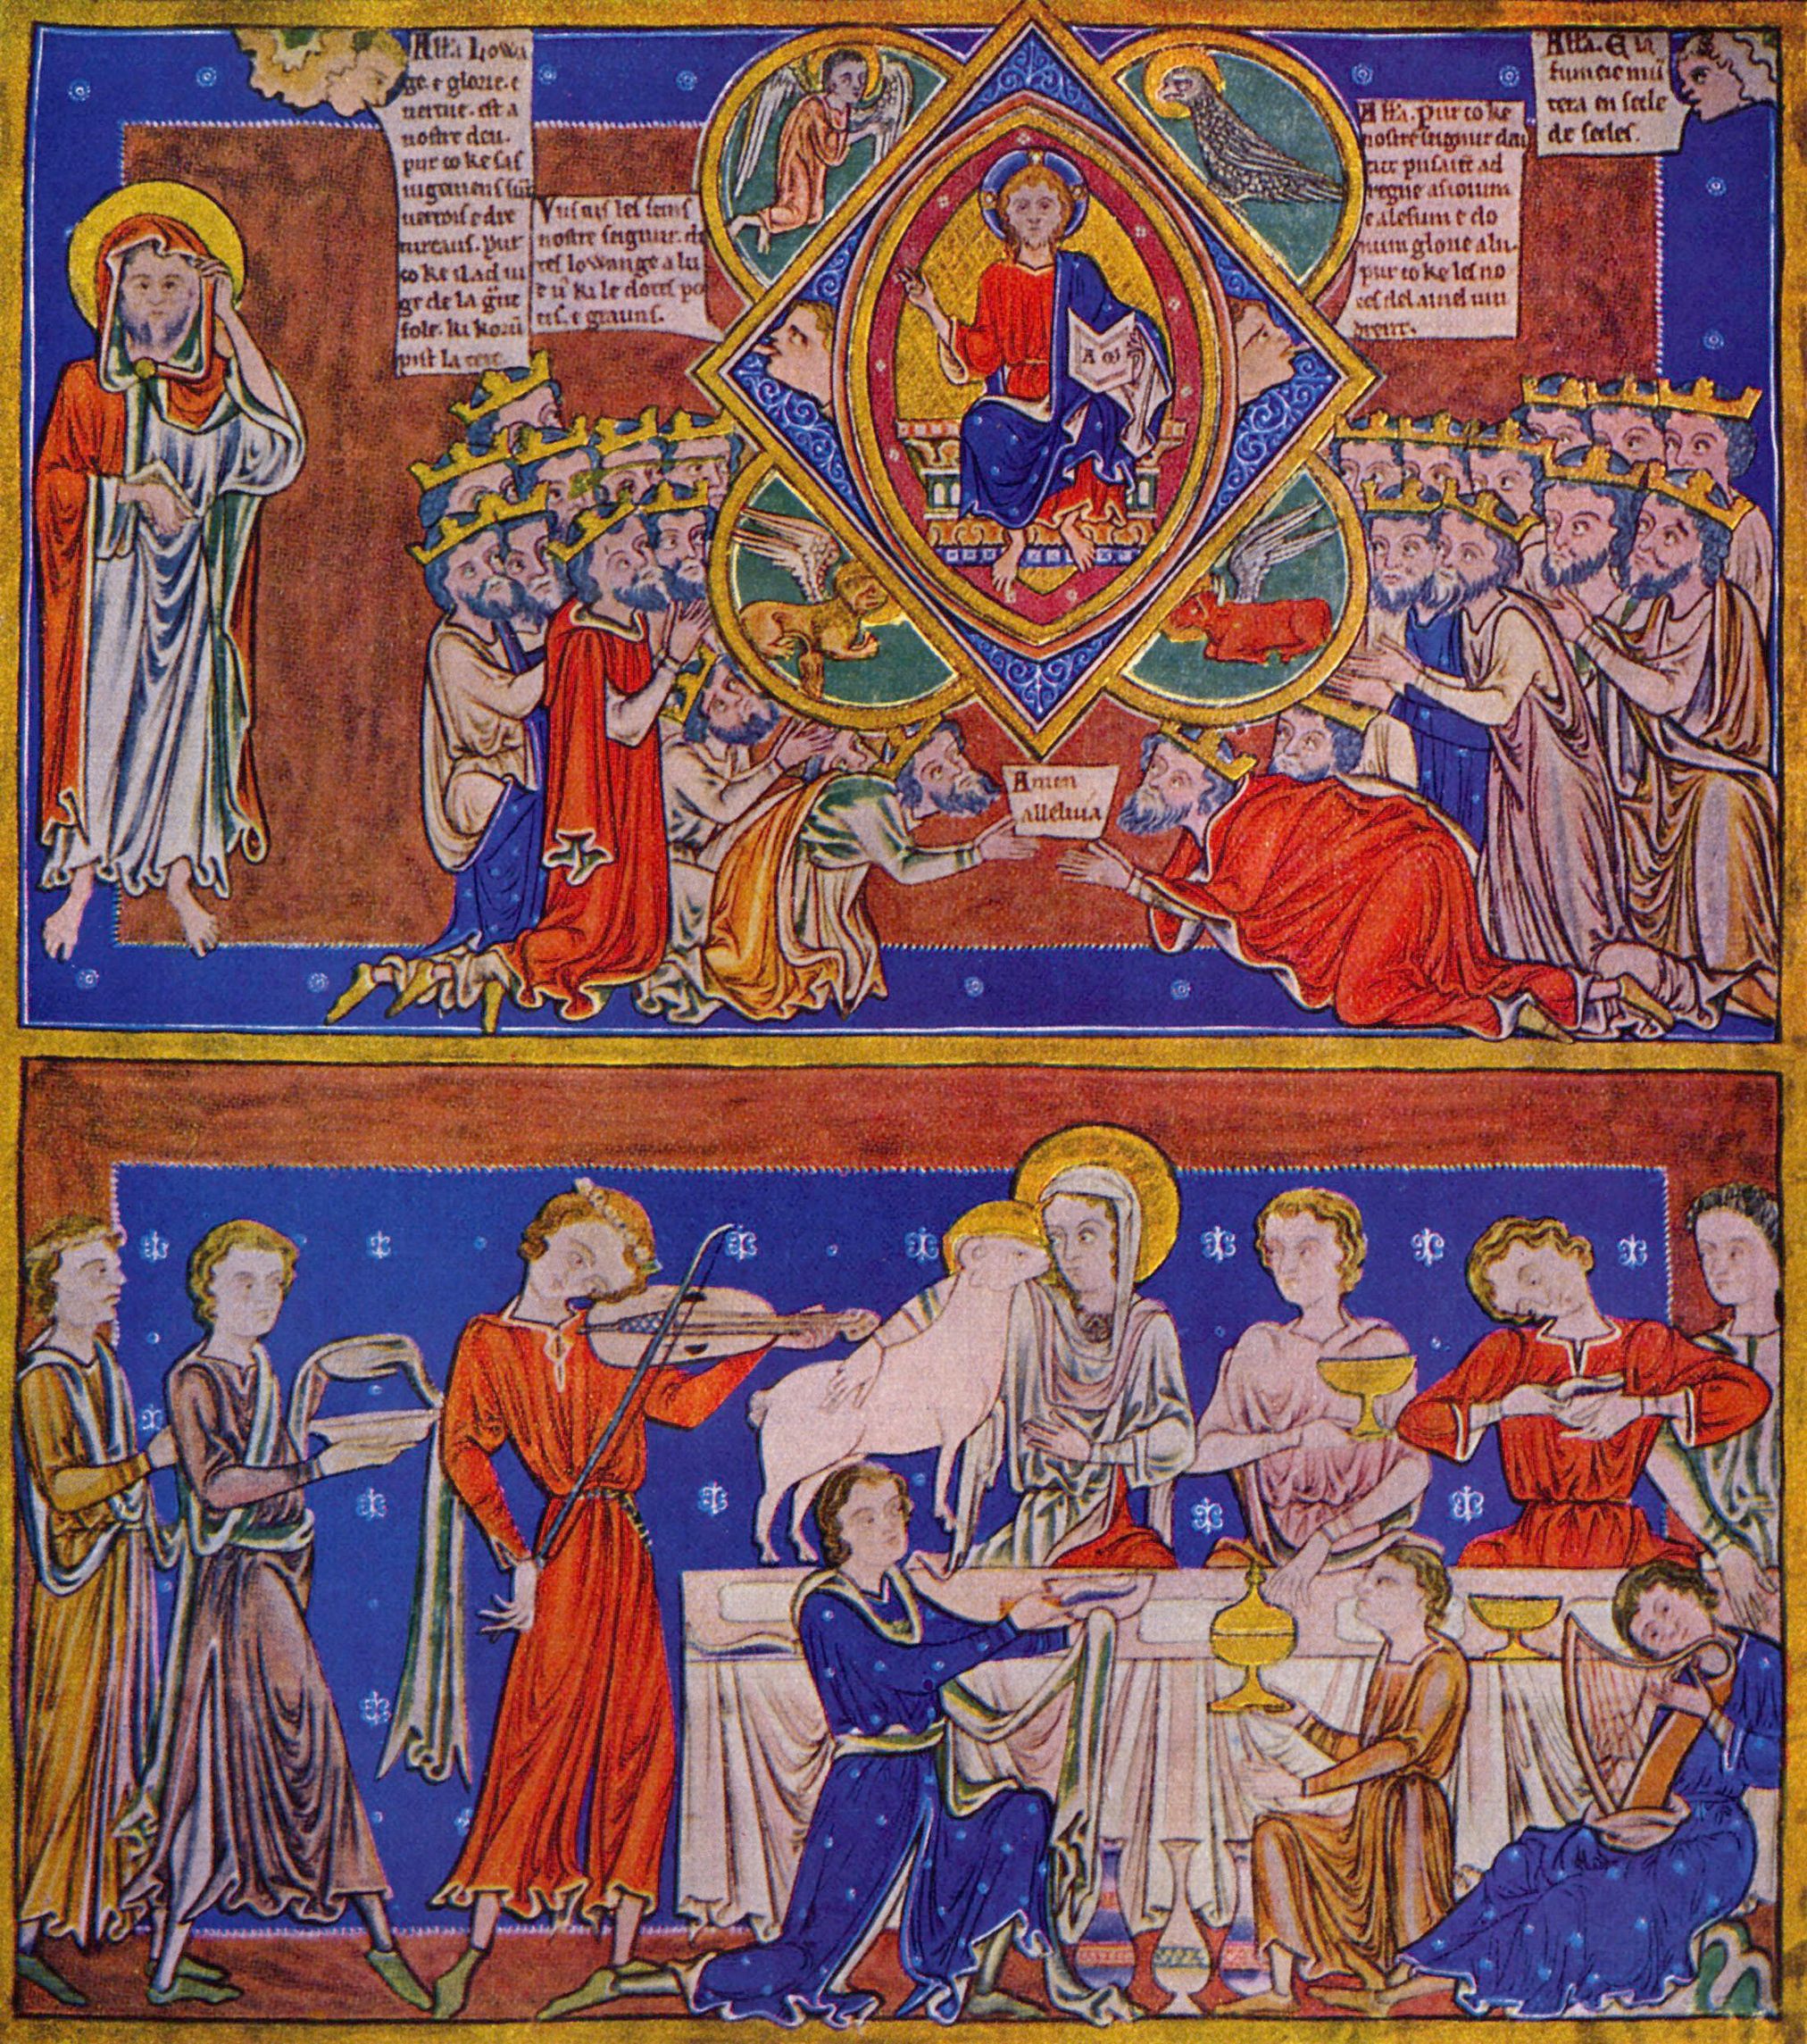 Alla. Lowa
ge. e glorie. e
vertue. est a
nostre deu.
pur co ke ses
iugemens sũt
verrois e dre
itureaus. Pur
co ke il ad iu
ge de la
fole. ki korũ
pist la tere.
les seins
nostre seignur. di
tes lowange a lu
e ki le dotez pe
tis. e grauns.
Alla. Pur co ke
nostre seignur deu
tut pusant ad
regne asioium
e alesum e do
num glorie a lu.
pur co ke les no
ces del
Alla. E la
fumeie mũ
tera en secle
de secles.
A ω
Amen
alleluia